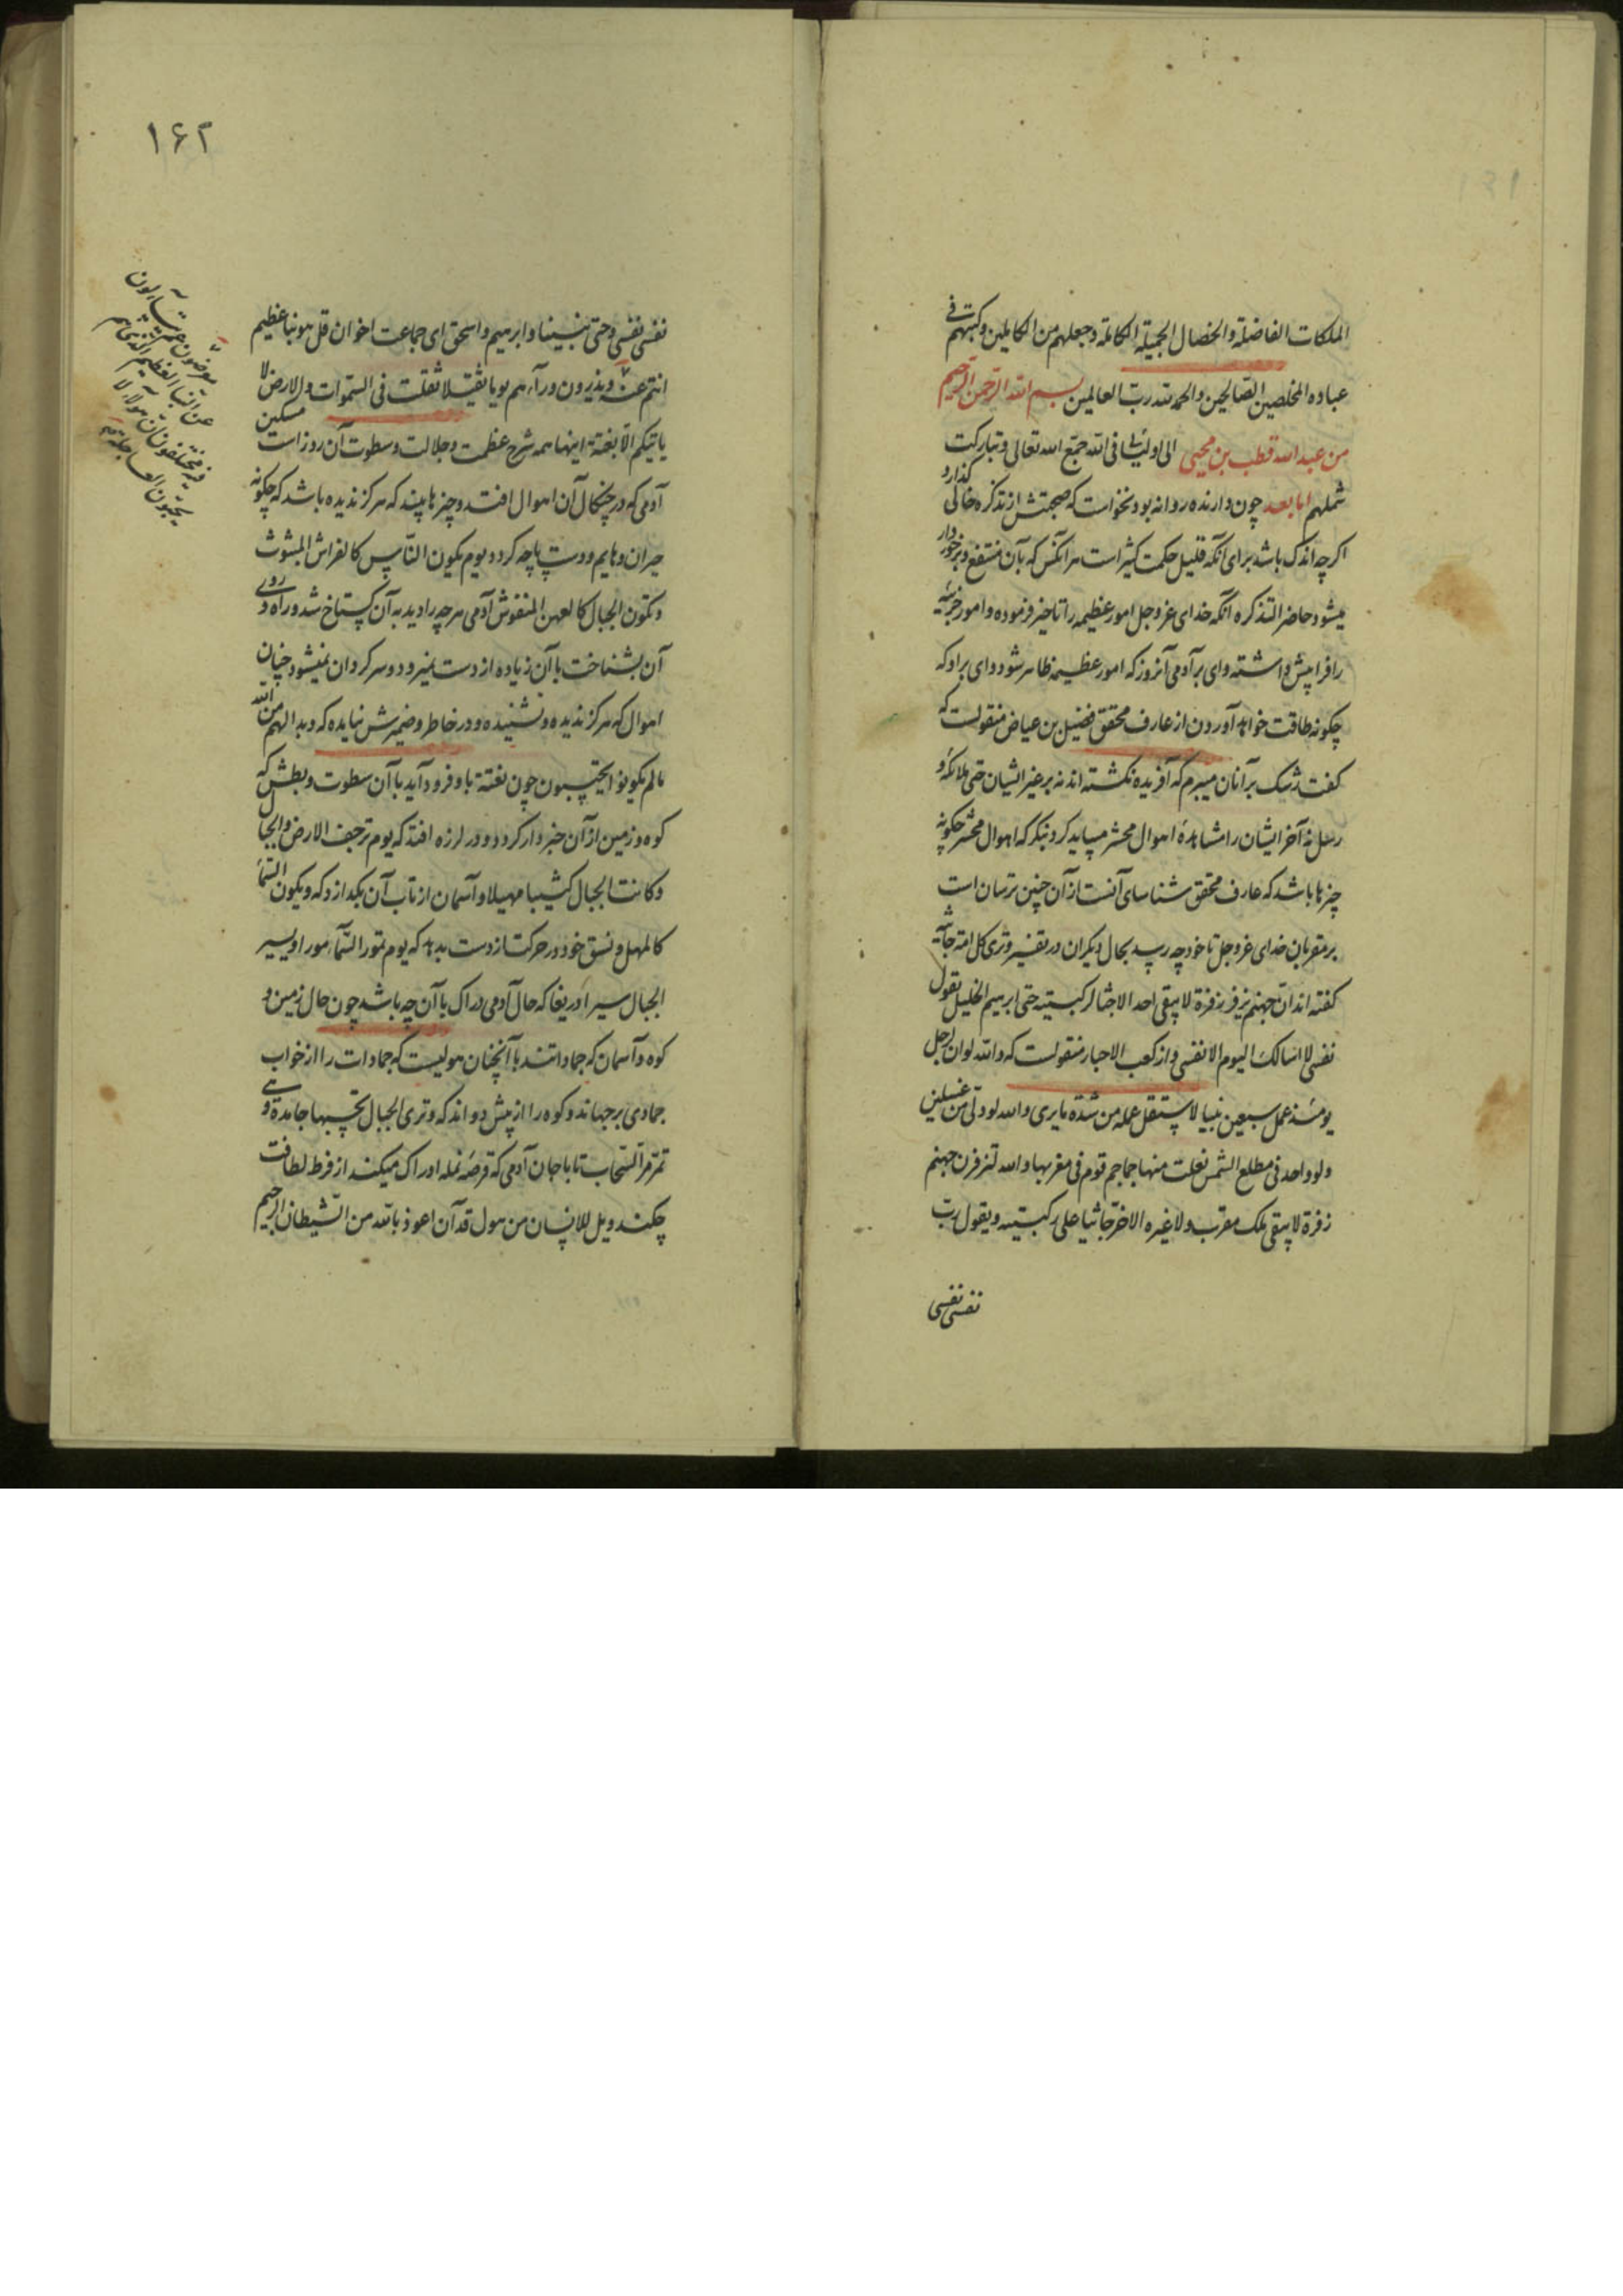 الملکات الفاضلة و الخصال الجمیلة الکاملة و جعلهم من الکاملین و کتبهم فی
عباده المخلصین الصالحین و الحمد لله رب العالمین بسم الله الرحمن الرحیم
من عبد الله قطب بن محیی الی اولیائی فی الله جمع الله تعالی و تبارکت
شملهم اما بعد چون دارنده روانه بود نخواست که صحبتش از تذکره خالی گذارد
اکرچه اندک باشد برای آنکه قلیل حکمت کثیر است هر آنکس که بآن منتفع و برخوردار
میشود حاضر التذکره آنکه خدای عز و جل امور عظیمه را تاخیر فرموده و امور جزئیه
را فرا پیش داشته وای بر آدمی آنروز که امور عظیمه ظاهر شود وای براو که
چکونه طاقت خواهد آوردن از عارف محقق فضیل بن عیاض منقولست که
کفت رشک بر آنان میبرم که آفریده نکشته اند نه بر غیر ایشان حتی ملائکه و
رسل نه آخر ایشان را مشاهدهٔ اهوال محشر میباید کرد بنکر که اهوال محشر چکونه
چیزها باشد که عارف محقق شناسای آنست از آن چنین ترسان است
بر مقربان خدای عز و جل تا خود چه رسد بحال دیکران در تفسیر و تری کل امة جاثیه
کفته اند ان جهنم تزفر زفرة لا یبقی احد الا جثا لرکبتیه حتی ابرهیم الخلیل یقول
نفسی لا اسالک الیوم الا نفسی و از کعب الاحبار منقولست که والله لو ان لرجل
یومئذ عمل سبعین نبیا لاستقل عمله من شدة ما یری والله لو دلی من غسلین
دلو واحد فی مطلع الشمس لغلت منها جماجم قوم فی مغربها والله لتزفرن جهنم
زفرة لا یبقی ملک مقرب و لا غیره الا خر جاثیا علی رکبتیه و یقول رب
نفسی نفسی
۱۶۲
نفسی نفسی و حتی نبینا و ابرهیم و اسحق ای جماعت اخوان قل هو نبأ عظیم
انتم عنه و یذرون ورآءهم یوما ثقیلا ثقلت فی السموات و الارض لا
یاتیکم الا بغتة اینها همه شرح عظمت و جلالت و سطوت آن روز است مسکین
آدمی که در چنکال آن اهوال افتد و چیزها بیند که هرکز ندیده باشد که چکونه
حیران و هایم و دست پاچه کردد یوم یکون الناس کالفراش المبثوث
و تکون الجبال کالعهن المنفوش آدمی هرچه را دید به آن کستاخ شد و راه و روی
آن بشناخت با آن زیاده از دست نمیرود و سرکردان نمیشود چنان
اهوال که هرکز ندیده و نشنیده و در خاطر و ضمیرش نیامده که و بدا لهم من الله
ما لم یکونوا یحتسبون چون بغتة باو فرود آید با آن سطوت و بطش که
کوه و زمین از آن خبردار کردد و در لرزه افتد که یوم ترجف الارض و الجبال
و کانت الجبال کثیبا مهیلا و آسمان از تاب آن بکدازد که و یکون السمآء
کالمهل و نسق خود در حرکت از دست بدهد که یوم تمور السمآء مورا و یسیر
الجبال سیرا دریغا که حال آدمی دراک با آن چه باشد چون حال زمین و
کوه و آسمان که جماداتند با آنچنان هولیست که جمادات را از خواب
جمادی برجهاند و کوه را از پیش دواند که و تری الجبال تحسبها جامدة و هی
تمر مر السحاب تا با جان آدمی که قرصهٔ نمله ادراک میکند از فرط لطافت
چکند ویل للانسان من هول قد آن اعوذ بالله من الشیطان الرجیم
معرضون عم یتسآءلون
عن النبأ العظیم الذی هم
فیه مختلفون ان هؤلآء
یحبون العاجلة صح